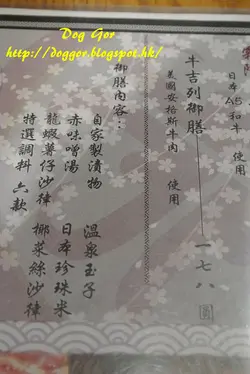 Dog Gor
http://doggor.blogspot.hk/
日本A5和牛 使用
牛吉列御膳 一七八
美國安格斯牛肉 使用
御膳內容：
自家製漬物 溫泉玉子
赤味噌湯 日本珍珠米
龍蝦蟹仔沙律 椰菜絲沙律
特選調料 六款